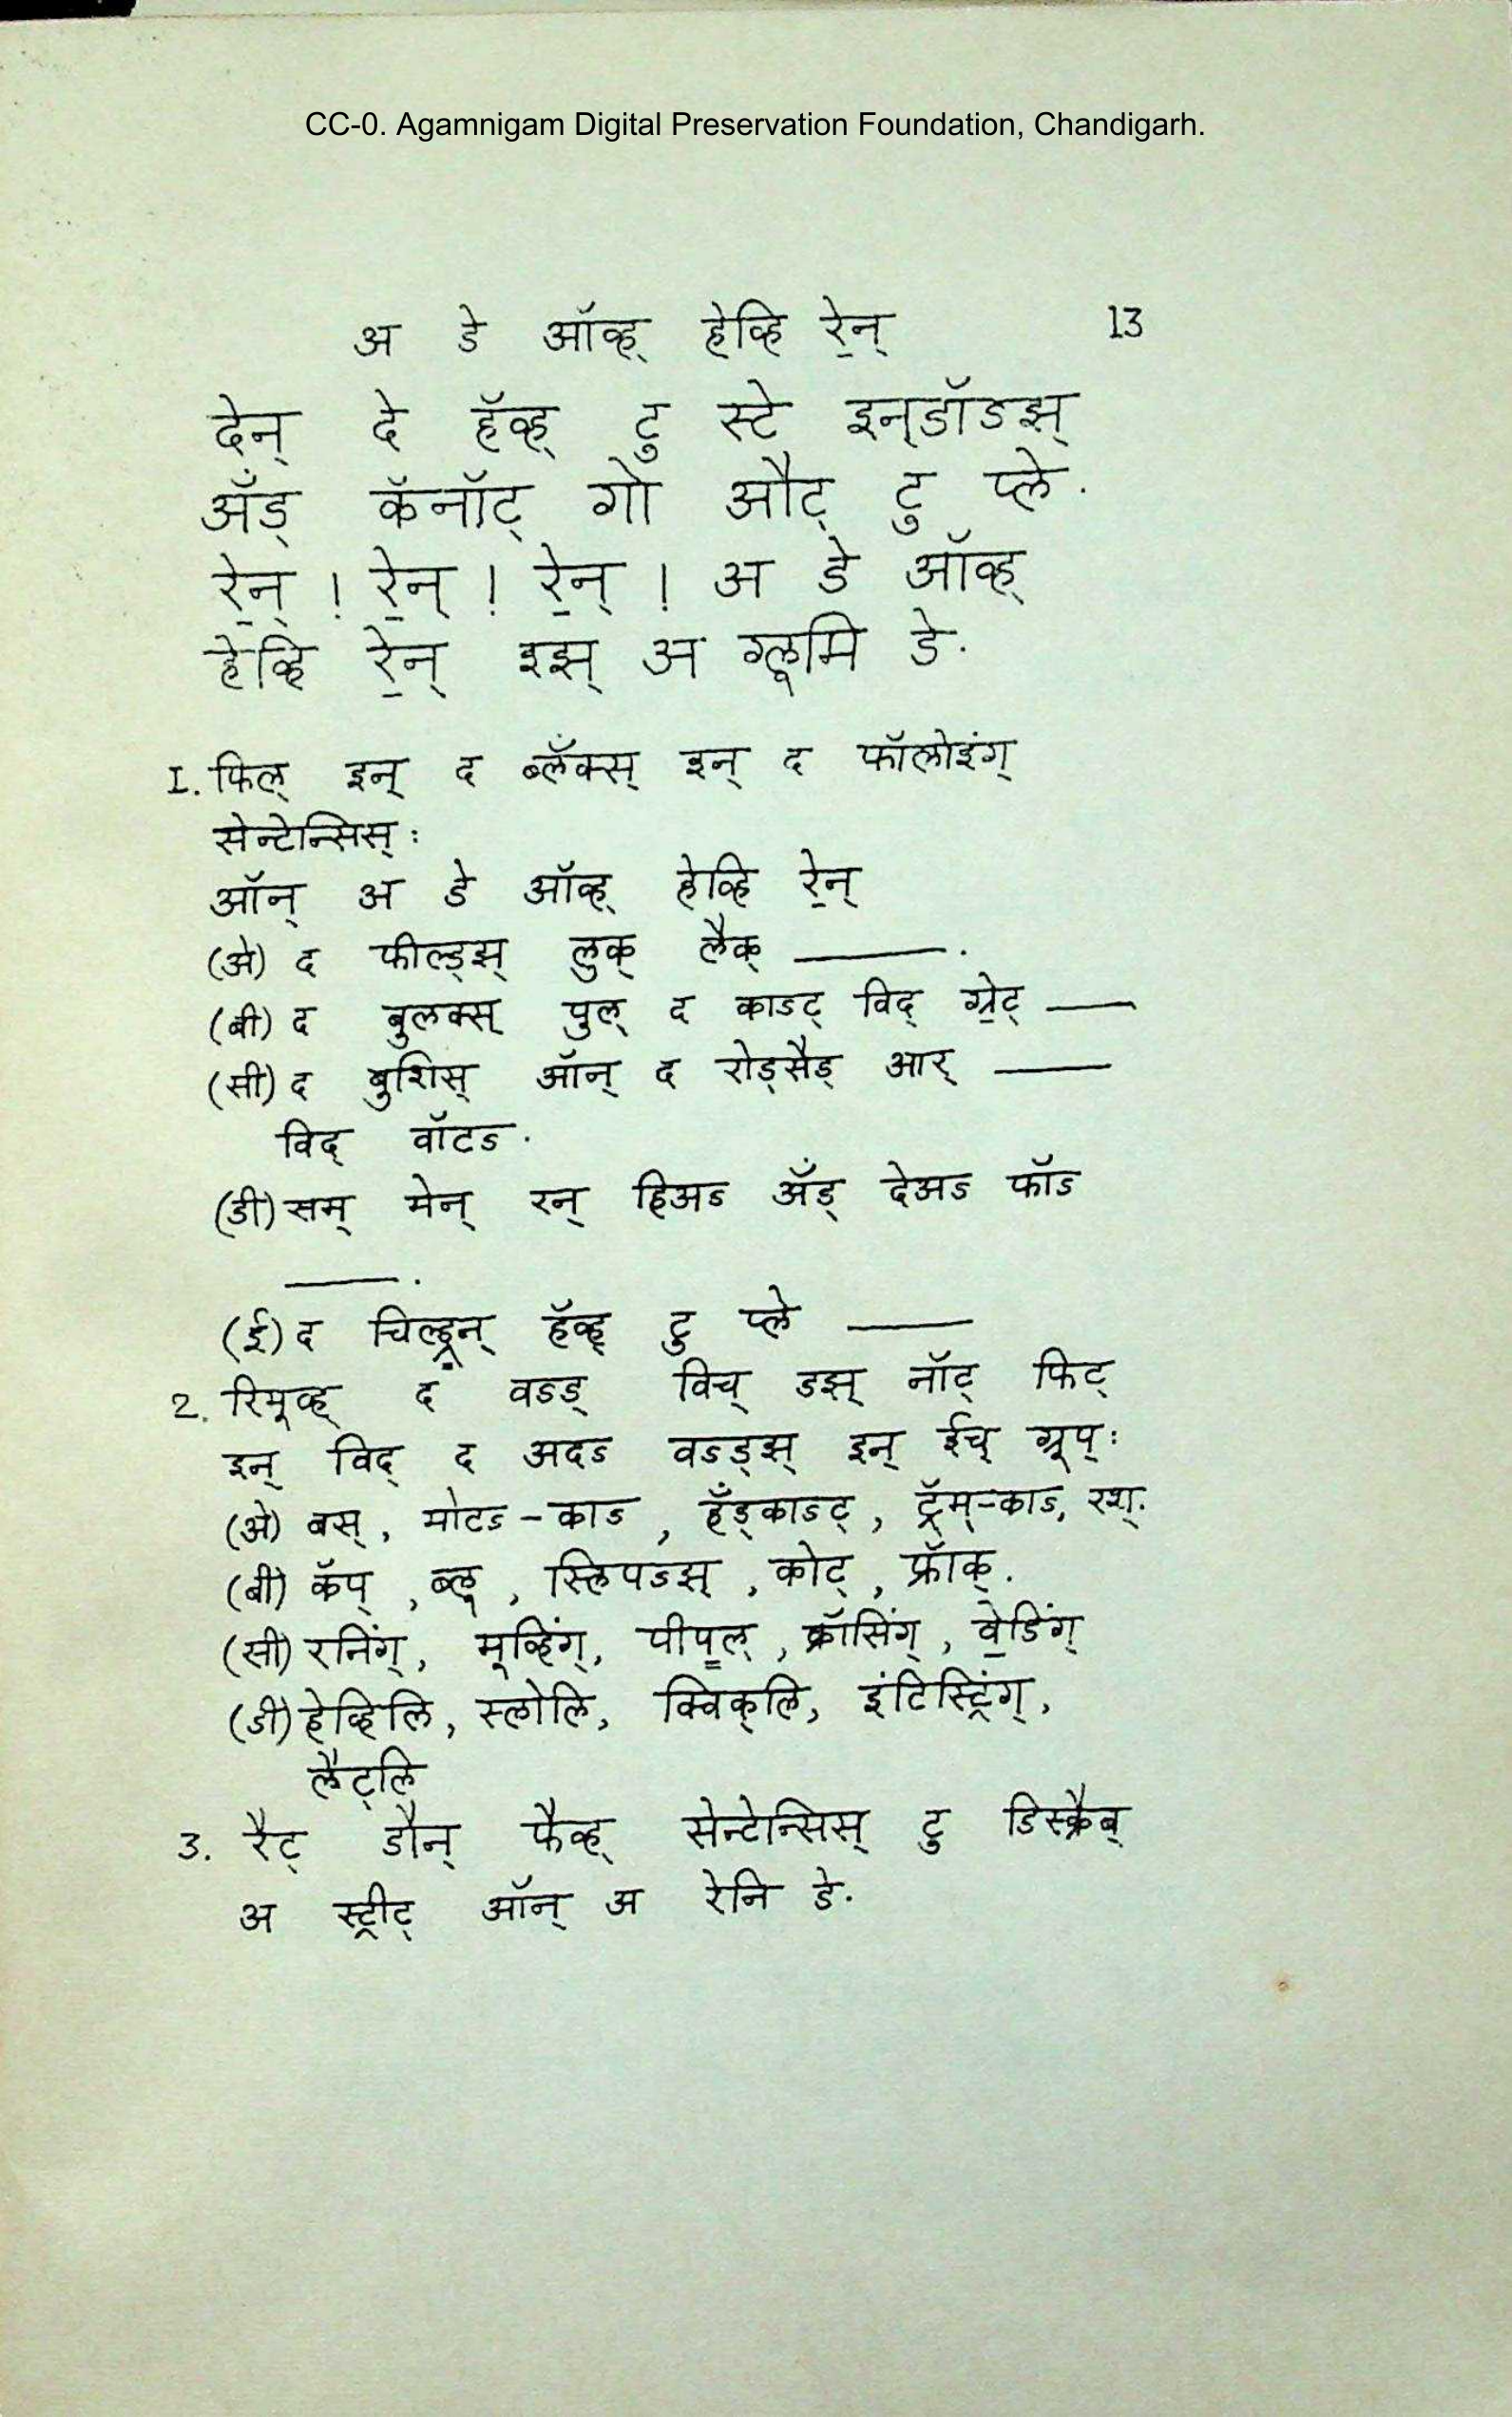 CC-0. Agamnigam Digital Preservation Foundation, Chandigarh.
अ डे ऑव्ह् हेव्हि रे॒न् 13
देन् दे हॅव्ह् टु स्टे इन्‌डॉऽझ्
अँड् कॅनॉट् गो औट् टु प्ले.
रे॒न् ! रे॒न् ! रे॒न् ! अ डे ऑव्ह्
हेव्हि रे॒न् इझ् अ ग्लूमि डे.
1. फिल् इन् द ब्लँक्स् इन् द फॉलोइंग्
सेन्टेन्सिस् :
ऑन् अ डे ऑव्ह् हेव्हि रे॒न्
(अे) द फील्ड्झ् लुक् लैक् ———.
(बी) द बुलक्स् पुल् द काऽट् विद् ग्रे॒ट् ——
(सी) द बुशिस् ऑन् द रोड्सैड् आर् ———
विद् वॉटऽ.
(डी) सम् मेन् रन् हिअऽ अँड् देअऽ फॉऽ
———.
(ई) द चिल्ड्रन् हॅव्ह् टु प्ले ———
2. रिमूव्ह् द वऽड् विच् डझ् नॉट् फिट्
इन् विद् द अदऽ वऽड्झ् इन् ईच् ग्रूप् :
(अे) बस्, मोटऽ-काऽ, हँड्काऽट्, ट्रॅम्-काऽ, रश्.
(बी) कॅप्, ब्लू, स्लिपऽझ्, कोट्, फ्रॉक्.
(सी) रनिंग्, मूव्हिंग्, पीपल्, क्रॉसिंग्, वे॒डिंग्
(डी) हेव्हिलि, स्लोलि, क्विक्‌लि, इंटिस्ट्रिंग्,
लैट्‌लि
3. रैट् डौन् फैव्ह् सेन्टेन्सिस् टु डिस्क्रैब्
अ स्ट्रीट् ऑन् अ रेनि डे.